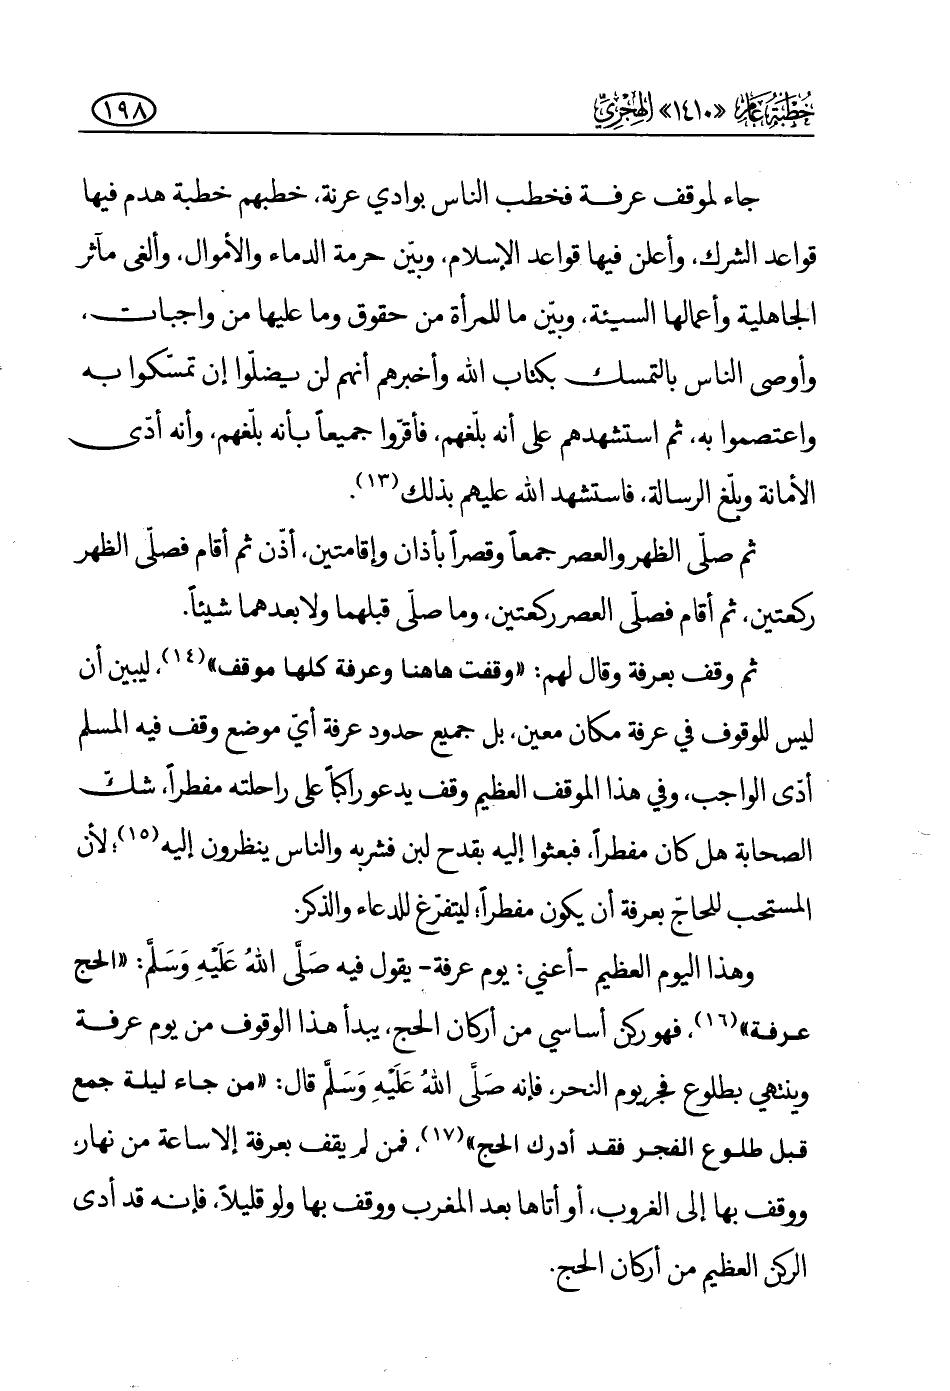 خطبة عام «١٤١٠» الهجري
١٩٨
جاء لموقف عرفة فخطب الناس بوادي عرنة، خطبهم خطبة هدم فيها
قواعد الشرك، وأعلن فيها قواعد الإسلام، وبيّن حرمة الدماء والأموال، وألغى مآثر
الجاهلية وأعمالها السيئة، وبيّن ما للمرأة من حقوق وما عليها من واجبات،
وأوصى الناس بالتمسك بكتاب الله وأخبرهم أنهم لن يضلّوا إن تمسّكوا به
واعتصموا به، ثم استشهدهم على أنه بلّغهم، فأقرّوا جميعاً بأنه بلّغهم، وأنه أدّى
الأمانة وبلّغ الرسالة، فاستشهد الله عليهم بذلك(١٣).
ثم صلّى الظهر والعصر جمعاً وقصراً بأذان وإقامتين، أذّن ثم أقام فصلّى الظهر
ركعتين، ثم أقام فصلّى العصر ركعتين، وما صلّى قبلهما ولا بعدهما شيئاً.
ثم وقف بعرفة وقال لهم: «وقفت هاهنا وعرفة كلها موقف»(١٤)، ليبين أن
ليس للوقوف في عرفة مكان معين، بل جميع حدود عرفة أيّ موضع وقف فيه المسلم
أدّى الواجب، وفي هذا الموقف العظيم وقف يدعو راكباً على راحلته مفطراً، شكّ
الصحابة هل كان مفطراً، فبعثوا إليه بقدح لبن فشربه والناس ينظرون إليه(١٥)؛ لأن
المستحب للحاجّ بعرفة أن يكون مفطراً؛ ليتفرّغ للدعاء والذكر.
وهذا اليوم العظيم -أعني: يوم عرفة- يقول فيه صَلَّى اللهُ عَلَيْهِ وَسَلَّمَ: «الحج
عرفة»(١٦)، فهو ركن أساسي من أركان الحج، يبدأ هذا الوقوف من يوم عرفة
وينتهي بطلوع فجر يوم النحر، فإنه صَلَّى اللهُ عَلَيْهِ وَسَلَّمَ قال: «من جاء ليلة جمع
قبل طلوع الفجر فقد أدرك الحج»(١٧)، فمن لم يقف بعرفة إلا ساعة من نهار،
ووقف بها إلى الغروب، أو أتاها بعد المغرب ووقف بها ولو قليلاً، فإنه قد أدى
الركن العظيم من أركان الحج.